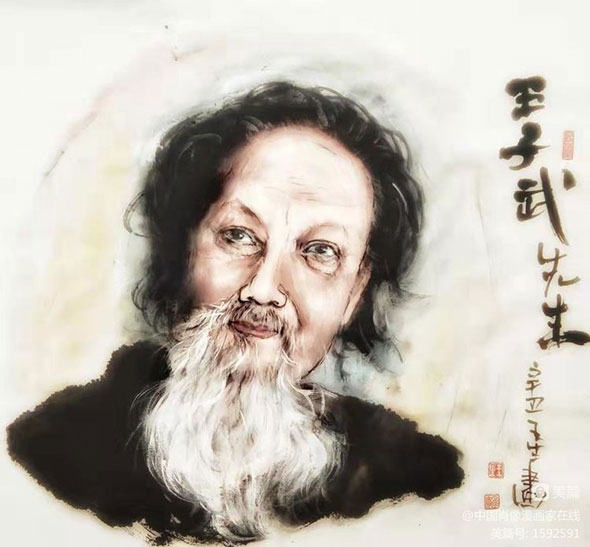 王子武先生
辛丑
畫
美篇
@中国肖像漫画家在线
美篇号: 1592591